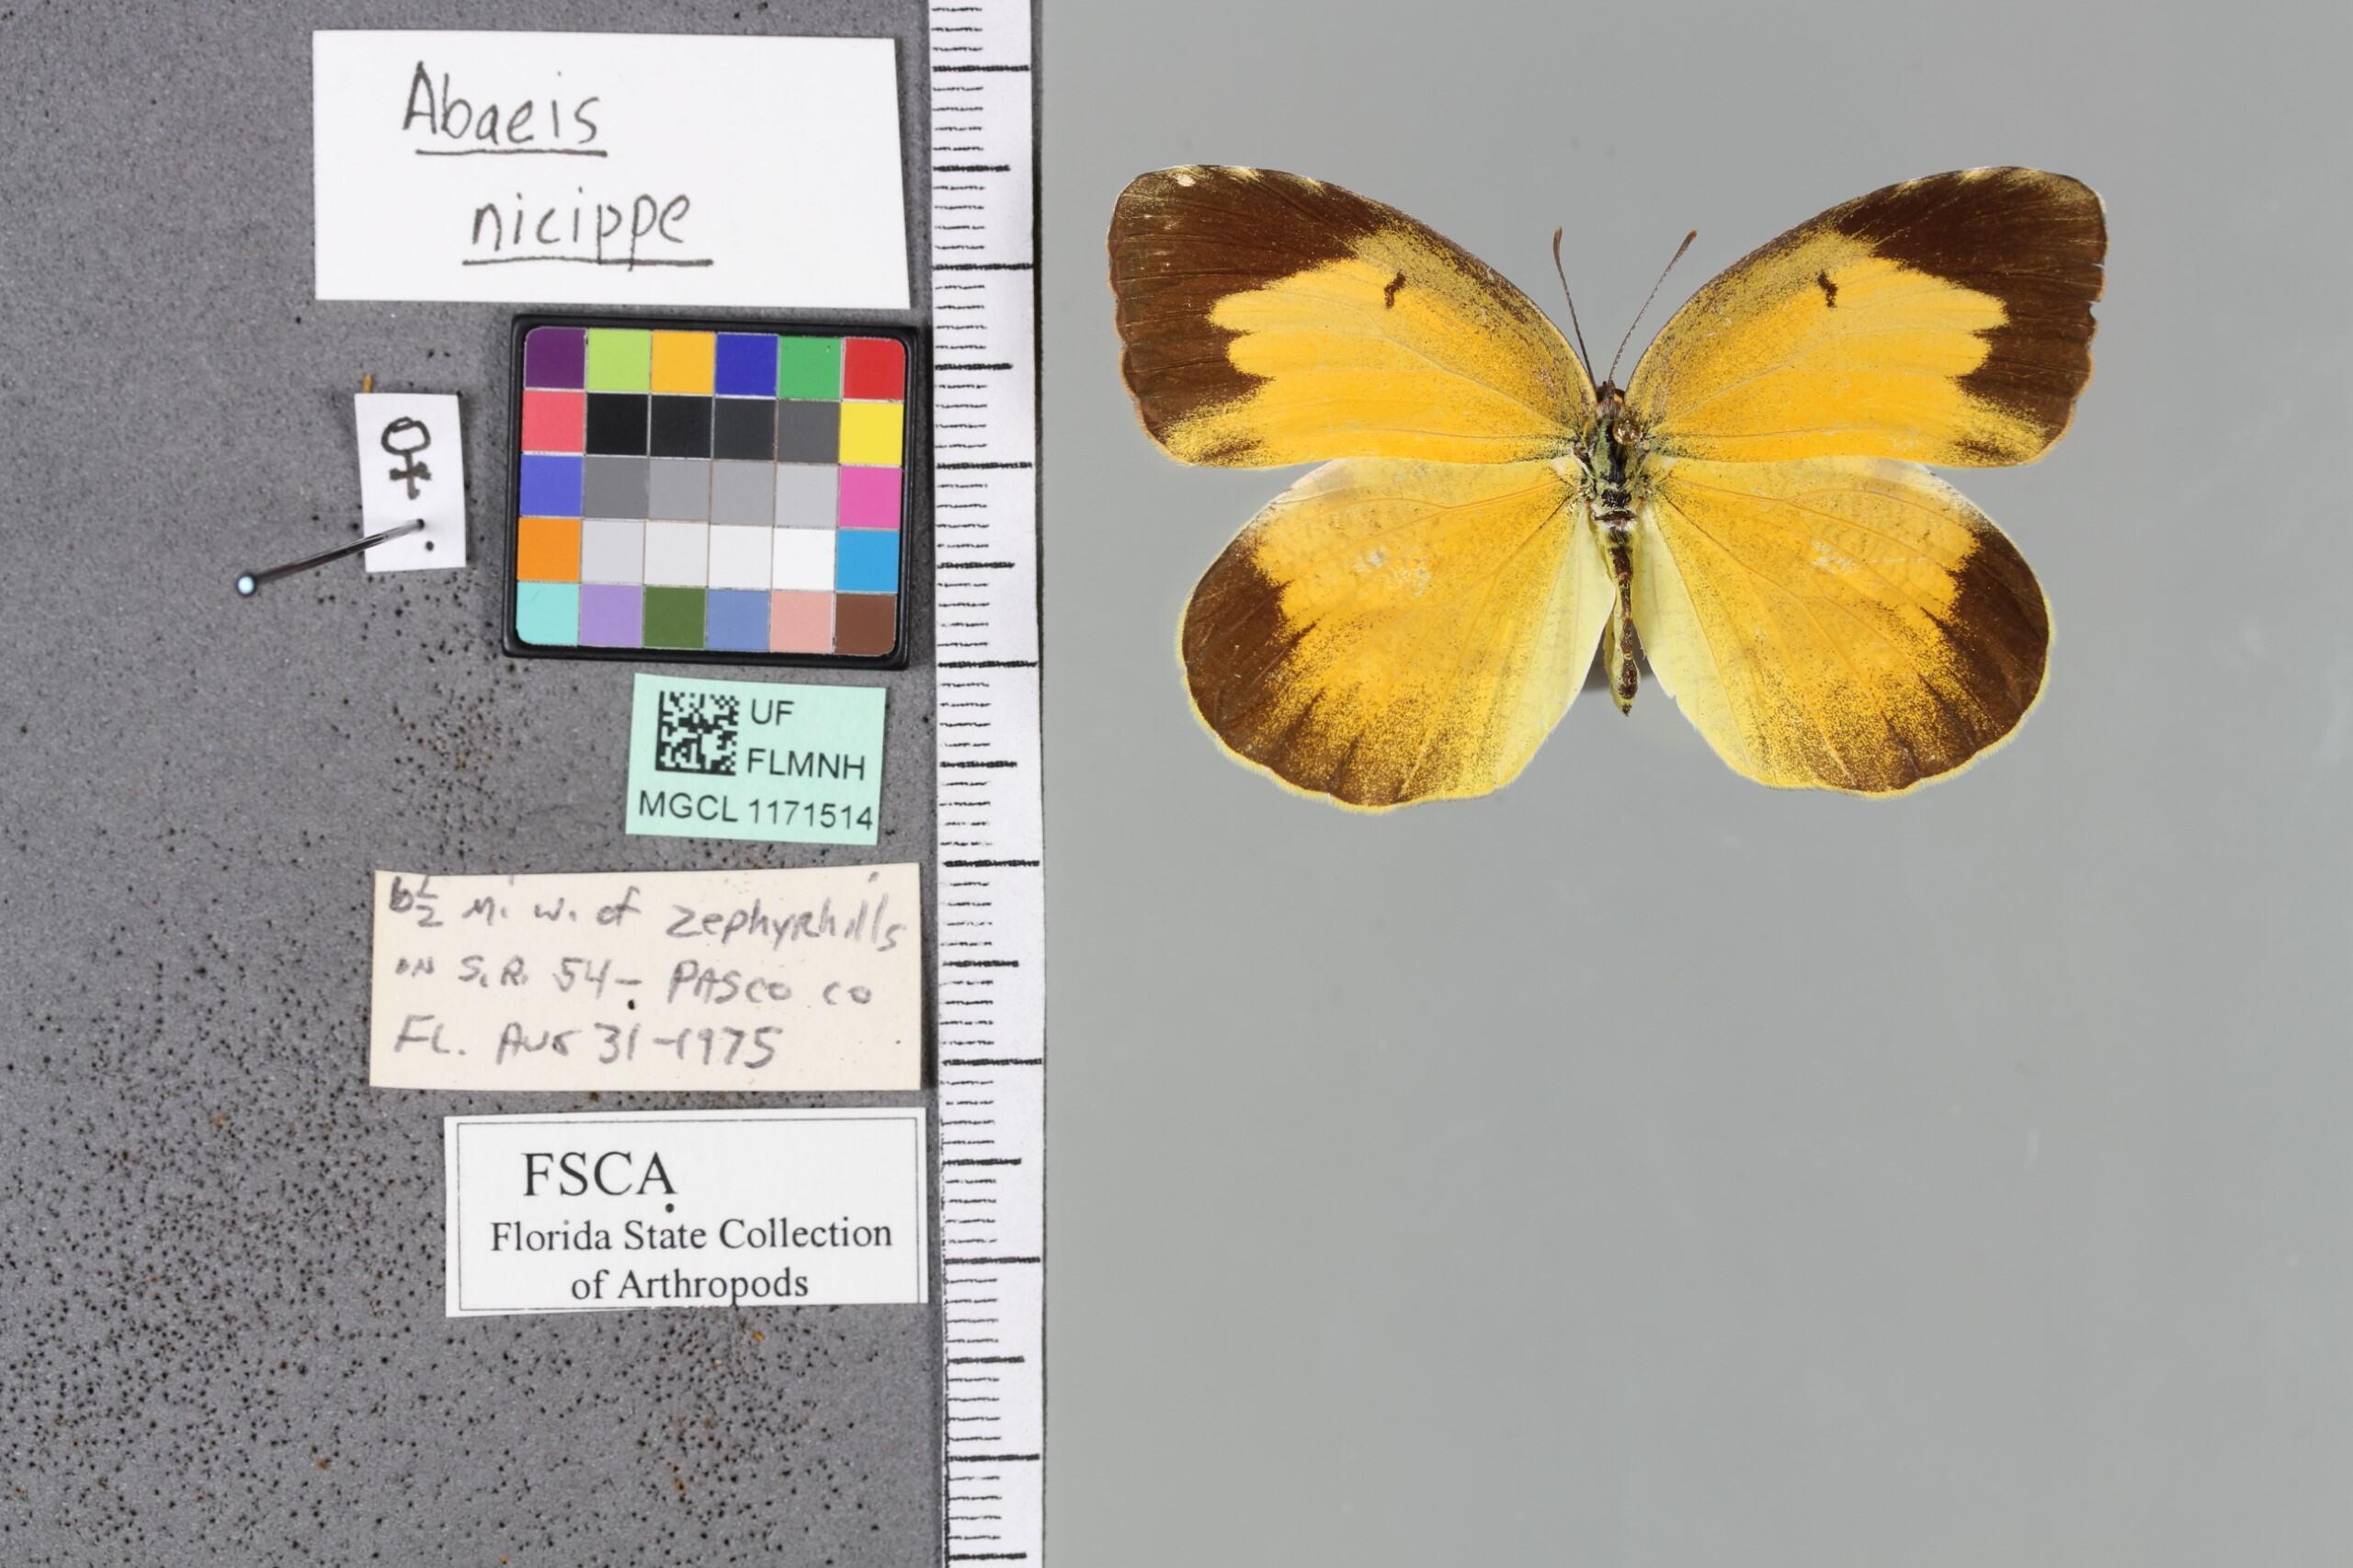 Abaeis
nicippe
♀
UF
FLMNH
MGCL 1171514
6½ M. W. of Zephyrhills
on S.R. 54 - PASCO CO
FL. AUG 31-1975
FSCA
Florida State Collection
of Arthropods